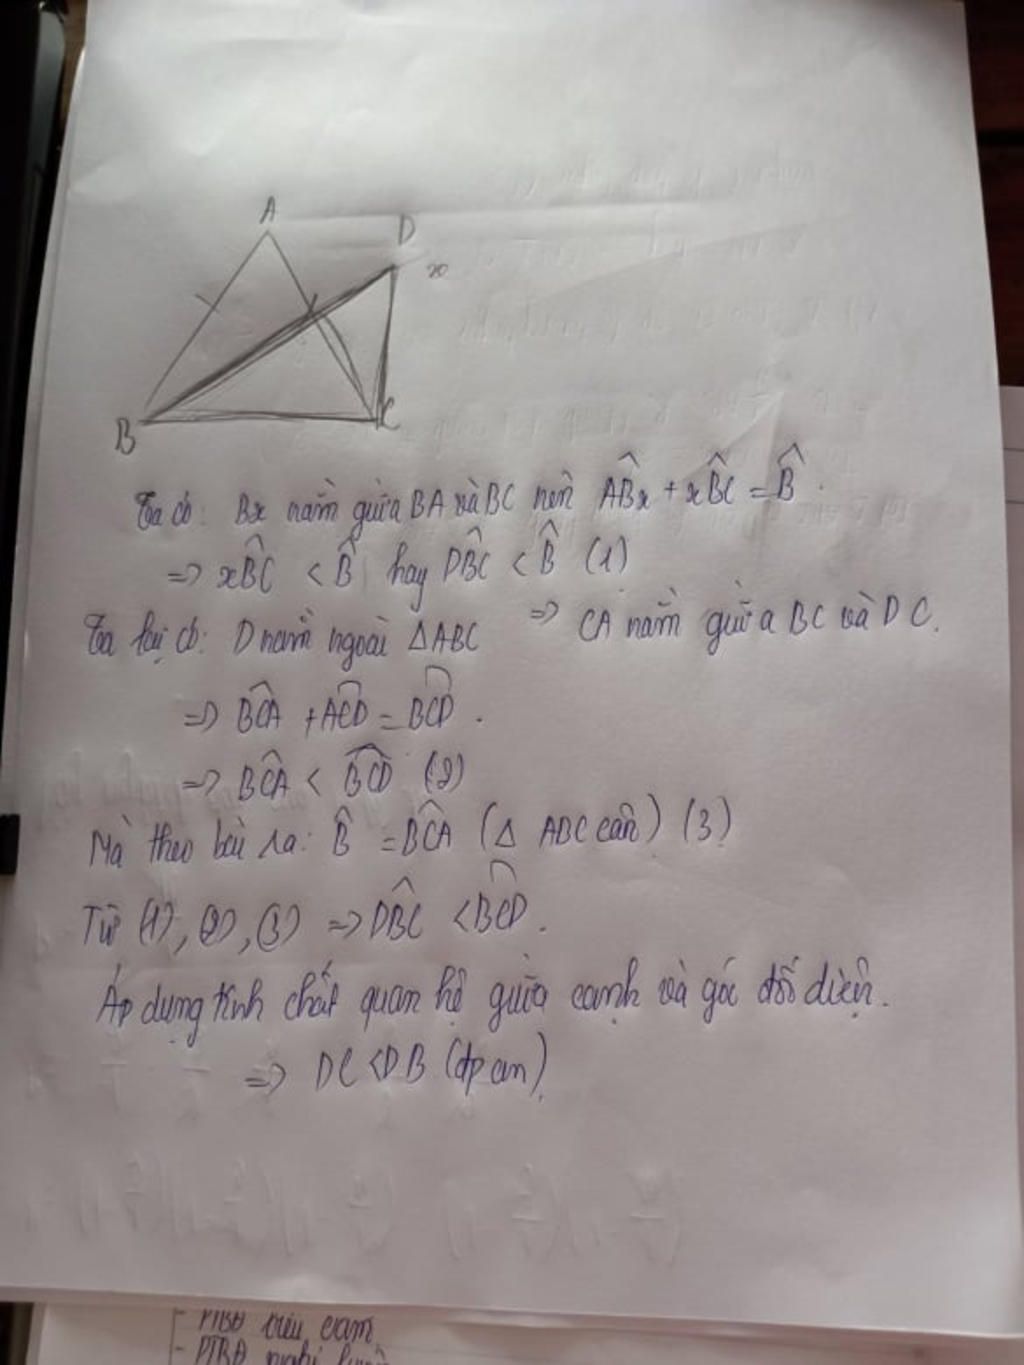 A
D
x
B
C
Ta có: Bx nằm giữa BA và BC nên ABx̂ + xBĈ = B̂.
=> xBĈ < B̂ hay DBĈ < B̂ (1)
Ta lại có: D nằm ngoài ΔABC => CA nằm giữa BC và DC.
=> BCÂ + ACD̂ = BCD̂.
=> BCÂ < BCD̂ (2)
Mà theo bài ra: B̂ = BCÂ (Δ ABC cân) (3)
Từ (1), (2), (3) => DBĈ < BCD̂.
Áp dụng tính chất quan hệ giữa cạnh và góc đối diện.
=> DC < DB (đpcm)
- PTBĐ biểu cảm
- PTBĐ nghị